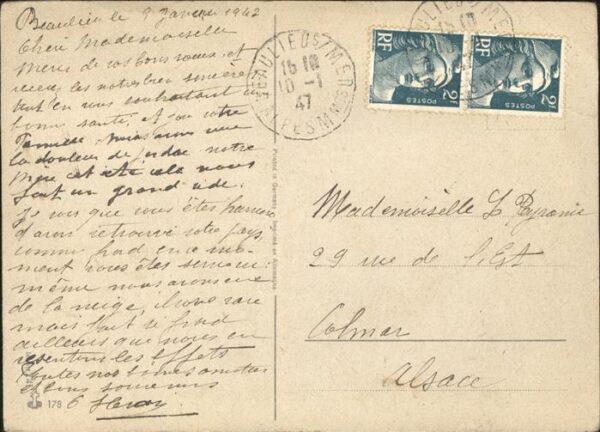 Beaulieu le 9 Janvier 1947
Chère Mademoiselle
Merci de vos bons vœux, et
recevez les notres bien sincères
tout en vous souhaitant une
bonne santé, et à votre
Famille. nous avons eu
la douleur de perdre notre
mère et cela nous
fait un grand vide.
Je vois que vous êtes heureuse
d'avoir retrouvé votre pays,
comme froid en ce mo-
ment vous êtes
même nous avons eu
de la neige, chose rare
mais tout ce froid
ailleurs que nous en
ressentons les effets
toutes nos bonnes amitiés
et bons souvenirs
178 6
Printed in Germany
BEAULIEU S/MER
15 10
10 -1
47
ALPES MMES
RF
POSTES
2F
RF
POSTES
2F
Mademoiselle L.
29 rue de l'Est
Colmar
Alsace